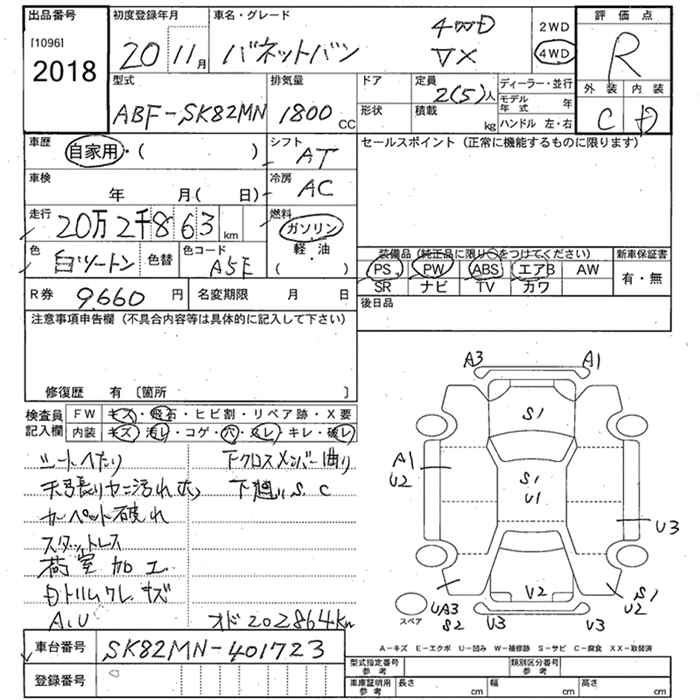 出品番号 初度登録年月 車名・グレード 評価点
[1096] 2018
20 11月 バネットバン 4WD VX 2WD 4WD R
型式 排気量 ドア 定員 ディーラー・並行 外装 内装
ABF-SK82MN 1800CC 2(5)人 モデル年式 年 C D
形状 積載 kg ハンドル 左・右
車歴 自家用・( ) シフト AT セールスポイント (正常に機能するものに限ります)
車検 年 月( 日) 冷房 AC
走行 20万2千863km 燃料 ガソリン 軽・油 ( )
色 白ツートン 色替 色コード A5E
装備品 (純正品に限り○をつけてください) 新車保証書
PS PW ABS エアB AW 有・無
SR ナビ TV カワ
R券 9660円 名変期限 月 日 後日品
注意事項申告欄 (不具合内容等は具体的に記入して下さい)
修復歴 有 〔箇所 〕
検査員記入欄 FW キズ・飛石・ヒビ割・リペア跡・X要
内装 キズ・汚レ・コゲ・穴・ヌレ・キレ・破レ
シートへたり 下クロスメンバー曲り
天張りヤニ汚れ大 下廻り S.C
カーペット破れ
スタッドレス
荷室加工
内トリムクレ キズ
A.U オド202864km
A3 A1
S1
A1 U2
S1 U1
U3
V2
UA3 S2 V3 V3 S1 U2
スペア
A-キズ E-エクボ U-凹み W-補修跡 S-サビ C-腐食 XX-取替済
車台番号 SK82MN-401723
型式指定番号 参考 類別区分番号 参考
登録番号
車庫証明用 参考 長さ cm 幅 cm 高さ cm